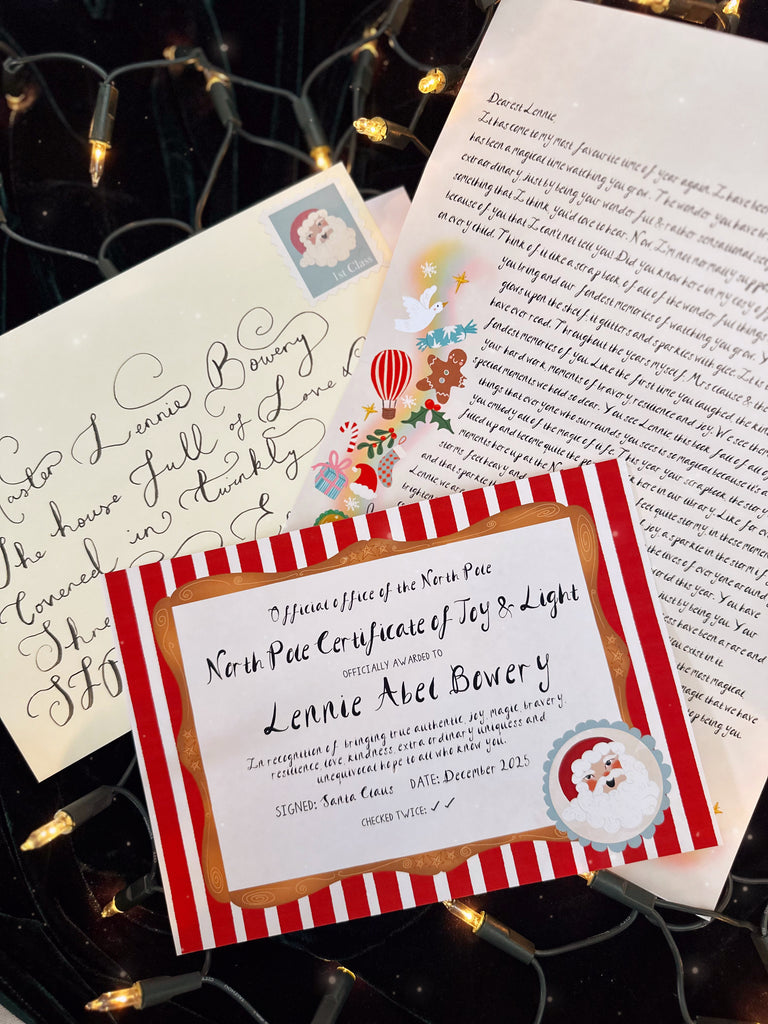 1st Class
Master Lennie Bowery
The house full of Love &
Covered in twinkly
Shre
Dearest Lennie
It has come to my most favourite time of year again. I have been
has been a magical time watching you grow. The wonder you have
extraordinary, just by being your wonderful & rather sensational
something that I think, you'd love to hear. Now I'm not normally
because of you that I can't not tell you! Did you know here in my cosy
on every child. Think of it like a scrapbook of all of the wonderful things
you bring and our fondest memories of watching you grow.
grows upon the shelf, it glitters and sparkles with glee. It is
have ever read. Throughout the years myself, Mrs Clause & the
fondest memories of you. Like the first time you laughed, the
your hard work, moments of bravery, resilience and joy. We see
special moments we hold so dear. You see Lennie this book full of all of
things that everyone who surrounds you sees is so magical because it's
you embody all of the magic of life. This year your scrapbook, the
filled up and become quite the
moments here up at the
storms feel heavy and
and that sparkle
Lennie we
brighten
in our library. Like for
feel quite stormy, in these moments
joy, a sparkle in the storm
the lives of everyone around
world this year. You have
just by being you. Your
have been a rare and
you exist in it.
the most magical
magic that we have
keep being you.
Official office of the North Pole
North Pole Certificate of Joy & Light
OFFICIALLY AWARDED TO
Lennie Abel Bowery
In recognition of bringing true authentic, joy, magic, bravery,
resilience, love, kindness, extra ordinary uniquess and
unequivocal hope to all who know you.
SIGNED: Santa Claus DATE: December 2025
CHECKED TWICE: ✓ ✓